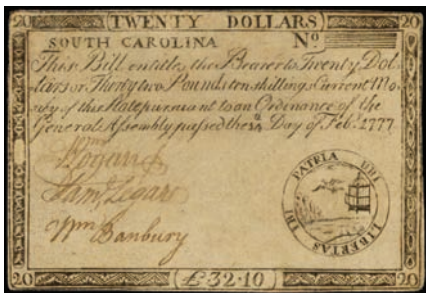 20 TWENTY DOLLARS 20
SOUTH CAROLINA No
This Bill entitles the Bearer to Twenty Dol-
lars or Thirty two Pounds ten shillings Current Mo-
ney of this State pursuant to an Ordinance of the
General Assembly passed the Day of Feb. 1777
Saml Legare
Wm Banbury
UBI LIBERTAS IBI PATRIA
20 £32·10 20